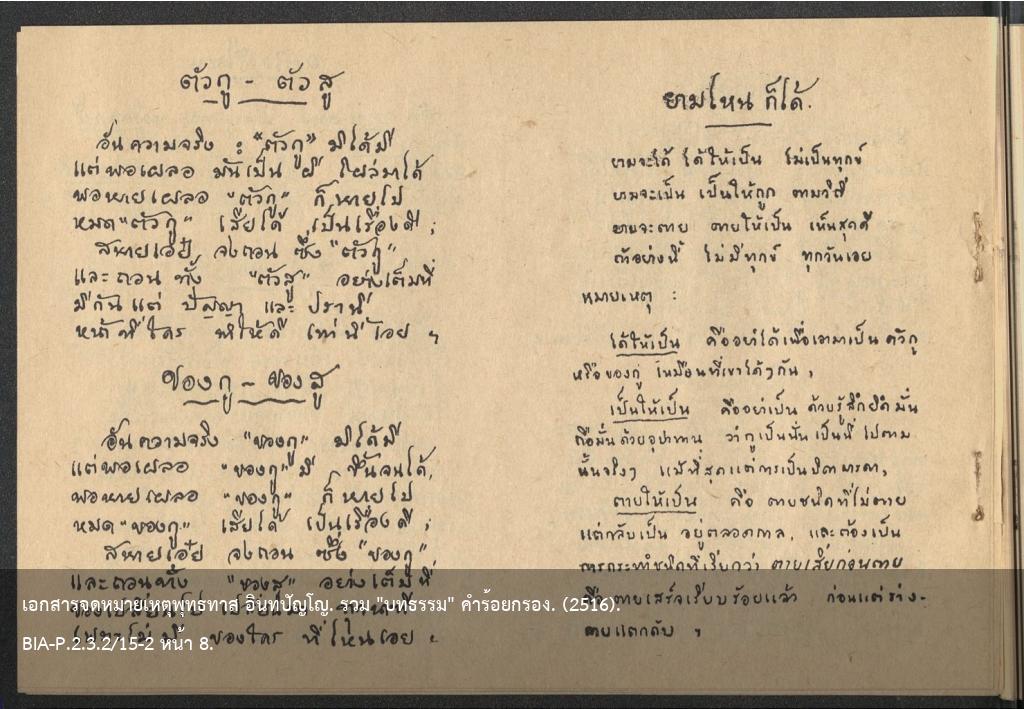 ตัวกู - ตัวสู
อันความจริง : "ตัวกู" มิได้มี
แต่พอเผลอ มันเป็น ผี โผล่มาได้
พอหายเผลอ "ตัวกู" ก็หายไป
หมด "ตัวกู" เสียได้ เป็นเรื่องดี ;
สหายเอ๋ย จงถอน ซึ่ง "ตัวกู"
และถอน ทั้ง "ตัวสู" อย่างเต็มที่
มีกันแต่ ปัญญา และ ปรานี
หน้าที่ใคร ทำให้ดี เท่านี้เอย ฯ
ของกู - ของสู
อันความจริง "ของกู" มิได้มี
แต่พอเผลอ "ของกู" มี ขึ้นจนได้,
พอหายเผลอ "ของกู" ก็หายไป
หมด "ของกู" เสียได้ เป็นเรื่องดี ;
สหายเอ๋ย จงถอน ซึ่ง "ของกู"
และถอนทั้ง "ของสู" อย่างเต็มที่
ของใคร ที่ไหนเอย ฯ
ยามไหน ก็ได้.
ยามจะได้ ได้ให้เป็น ไม่เป็นทุกข์
ยามจะเป็น เป็นให้ถูก ตามวิถี
ยามจะตาย ตายให้เป็น เห็นสุดดี
ถ้าอย่างนี้ ไม่มีทุกข์ ทุกวันเอย
หมายเหตุ :
ได้ให้เป็น คืออย่าได้เพื่อเอามาเป็น ตัวกู
หรือของกู เหมือนที่เขาได้ๆกัน,
เป็นให้เป็น คืออย่าเป็น ด้วยรู้สึกยึดมั่น
ถือมั่นด้วยอุปาทาน ว่ากูเป็นนั่นเป็นนี่ ไปตาม
นั้นจริงๆ แม้ที่สุดแต่การเป็นบิดามารดา,
ตายให้เป็น คือ ตายชนิดที่ไม่ตาย
แต่กลับเป็น อยู่ตลอดกาล, และต้องเป็น
การกระทำชนิดที่เรียกว่า ตายเสียก่อนตาย
คือตายเสร็จเรียบร้อยแล้ว ก่อนแต่ร่าง-
ตายแตกดับ ฯ
เอกสารจดหมายเหตุพุทธทาส อินทปัญโญ. รวม "บทธรรม" คำร้อยกรอง. (2516).
BIA-P.2.3.2/15-2 หน้า 8.